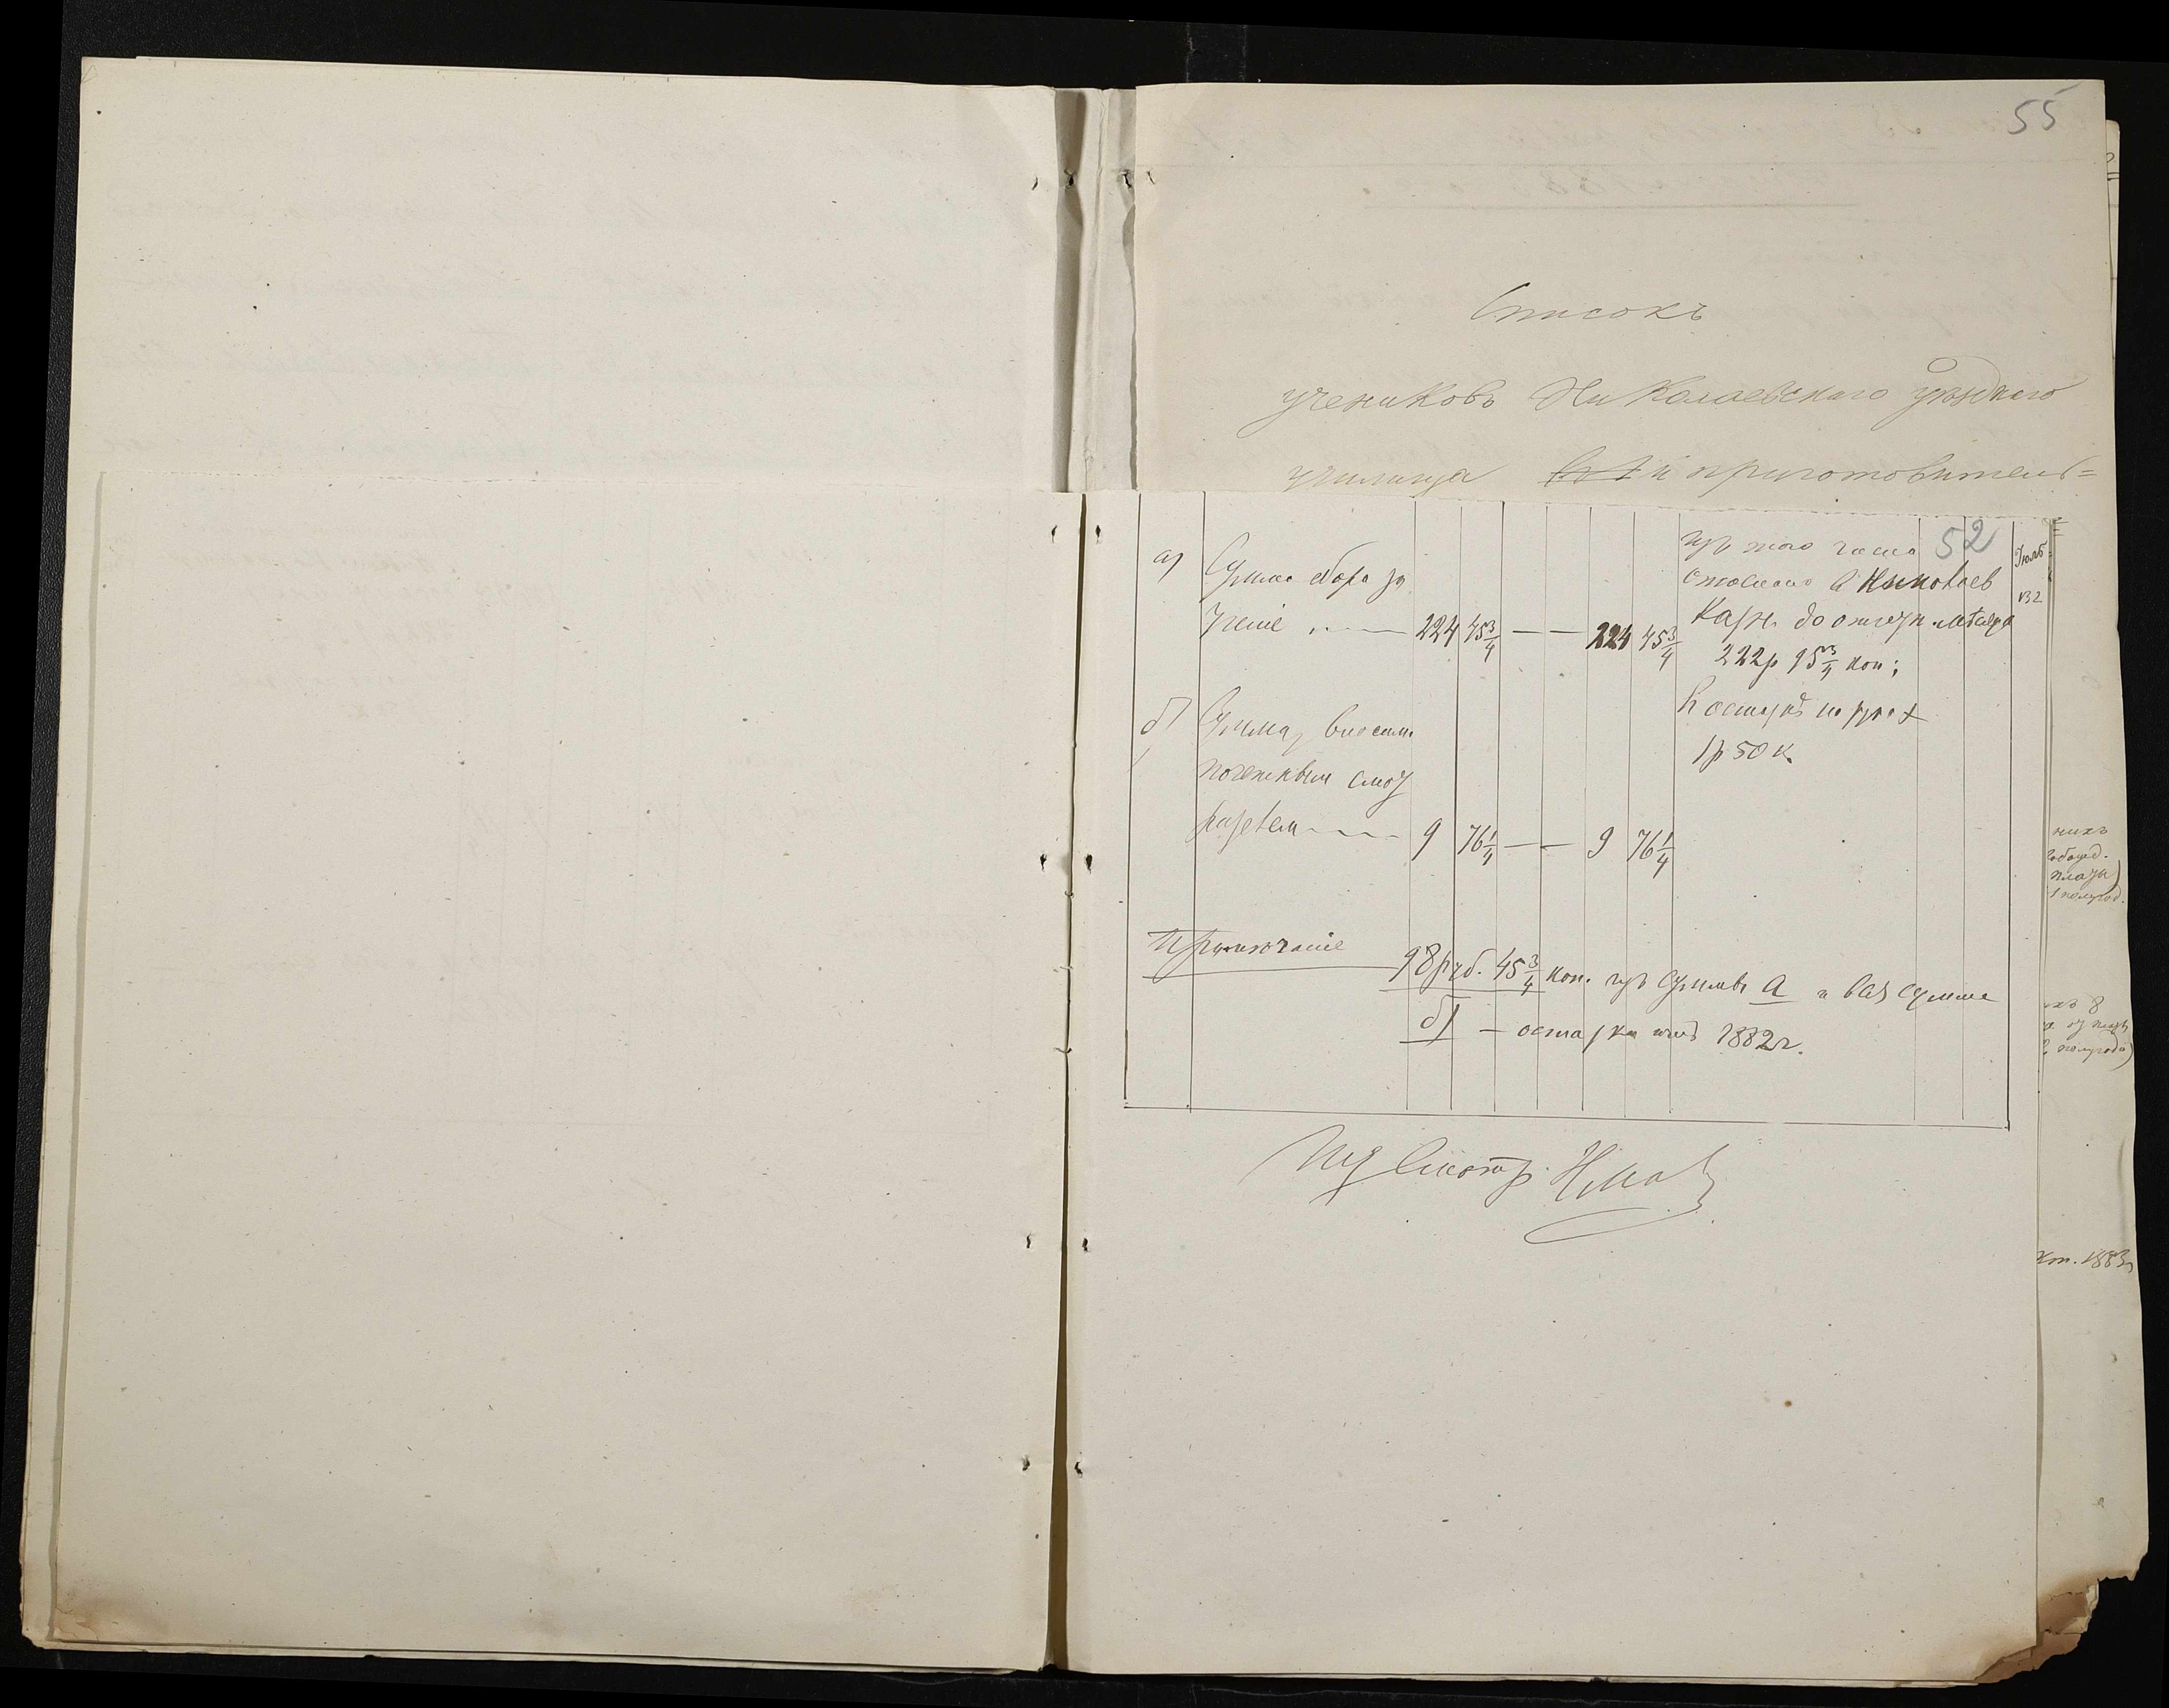 55
Списокъ
учениковъ Николаевскаго уѣзднаго
училища и приготовитель=
52
а) Сумма сбора за
ученіе 224 45 3/4 — — 224 45 3/4
изъ того числа
отослано въ Николаев
Казн. до
222р 95 3/4 коп;
въ остаткѣ на рукахъ
1р 50 к.
б) Сумма, вносим.
почетным смот
рителем 9 76 1/4 — — 9 76 1/4
Примѣчаніе 98 руб. 45 3/4 коп. изъ суммы а и вся сумма
б) — остатки 1882 г.
Смотр.
нихъ
платы)
1 полугод.
ихъ 8
полугодія)
коп. 1883